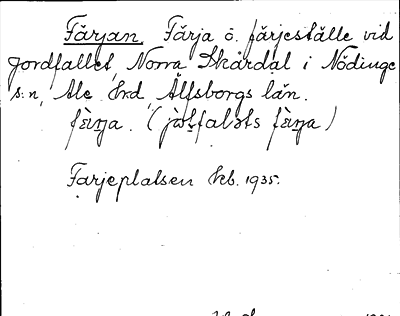 Färjan, Färja o. färjeställe vid
Jordfallet, Norra Skårdal i Nödinge
s:n, Ale hrd, Älfsborgs län.
färja. (
Färjeplatsen kb. 1935.